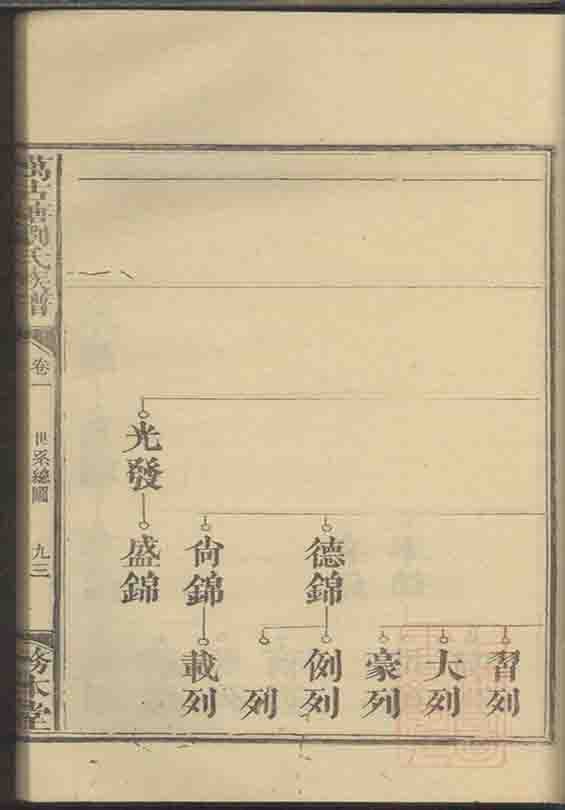 習列
大列
豪列
德錦
例列
列
尙錦
載列
光發
盛錦
萬古塘劉氏族譜
卷一
世系總圖
九三
務本堂